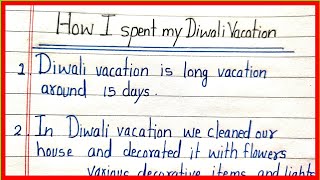 How I spent my Diwali Vacation
1. Diwali vacation is long vacation
around 15 days.
2. In Diwali vacation we cleaned our
house and decorated it with flowers
various decorative items and lights